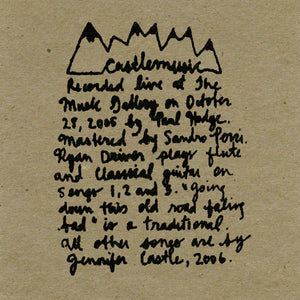 Castlemusic
Recorded live at The
Music Gallery on October
28, 2005 by Paul Hodge.
mastered by Sandro Perri.
Ryan Driver plays flute
and Classical guitar on
songs 1, 2 and 3. "Going
down this old road feeling
bad" is a traditional.
all other songs are by
Jennifer Castle, 2006.